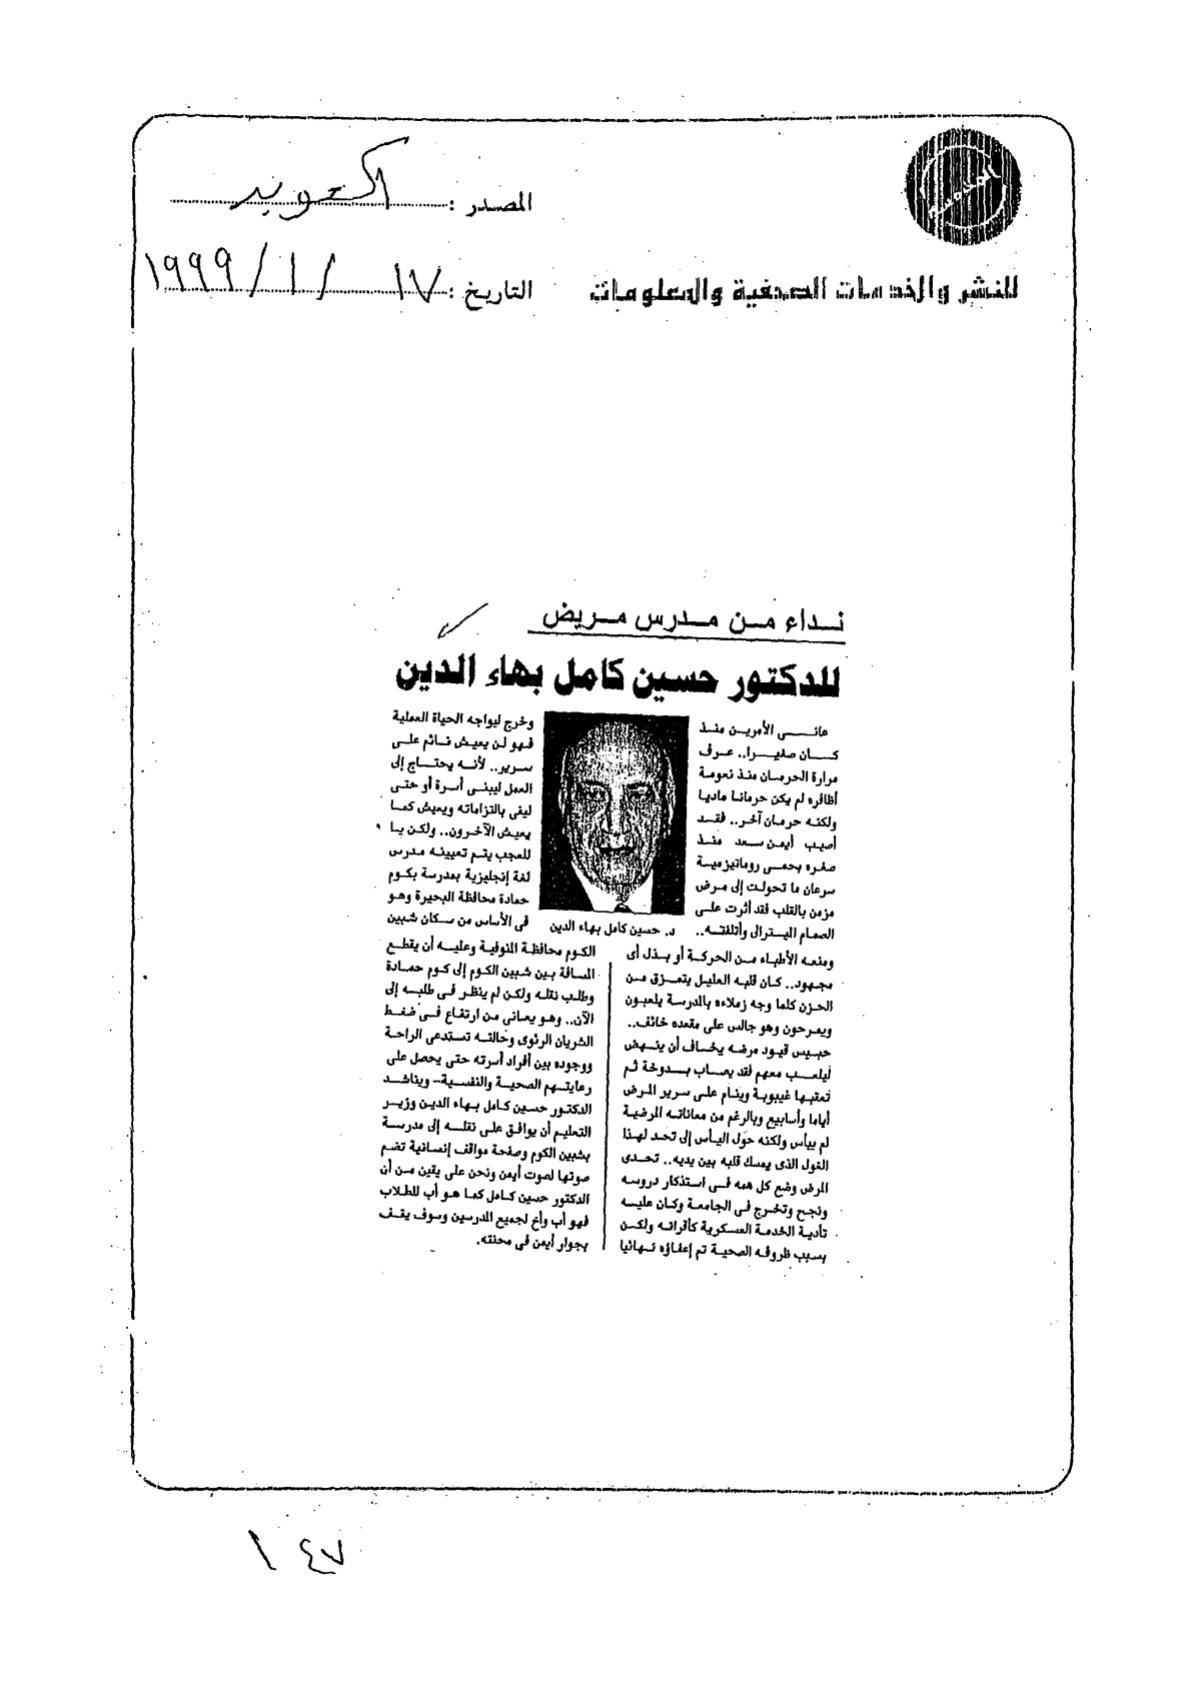 المصدر :
التاريخ : ١٧ / ١ / ١٩٩٩
للنشر والخدمات الصحفية والمعلومات
نـداء مـن مـدرس مـريض
للدكتور حسين كامل بهاء الدين
عانـــى الأمريـن منـذ
كـــان صغيـــرا.. عـرف
مرارة الحرمـان منذ نعومـة
أظافره لم يكن حرمانـا ماديـا
ولكنـه حرمـان آخـر.. فقـد
أصيـب أيمـن سـعد منـذ
صغره بحمـى روماتيزميـة
سرعان ما تحولـت إلى مـرض
مزمن بالقلب فقد أثرت علـى
الصمام الميـترالى وأتلفتـه..
د. حسين كامل بهاء الدين
ومنعه الأطباء مـن الحركـة أو بـذل أى
مجهود.. كـان قلبه العليل يتمـزق مـن
الحزن كلما وجه زملاءه بالمدرسة يلعبون
ويمرحون وهو جالس على مقعده خائف..
حبيس قيود مرضه يخـاف أن ينـهض
ليلعـب معـهم فقد يصـاب بـدوخة ثـم
تعقبـها غيبوبة وينـام علـى سرير المرض
أياما وأسابيع وبالرغم من معاناته المرضية
لم ييأس ولكنه حول اليـأس إلى تحـد لـهذا
الغول الذى يمسك قلبه بين يديه.. تحـدى
المرض وضع كل همه فـى استذكار دروسه
ونجح وتخـرج فى الجامعة وكـان عليـه
تأدية الخدمة العسكرية كأقرانه ولكـن
بسبب ظروفه الصحية تم إعفاؤه نـهائيا
وخرج ليواجه الحياة العملية
فهو لن يعيش نـائم علـى
سرير.. لأنـه يحتـاج إلى
العمل ليبنى أسرة أو حتـى
ليفى بالتزاماته ويعيش كمـا
يعيش الآخـرون.. ولكن يـا
للعجب يتـم تعيينـه مـدرس
لغة إنجليزية بمدرسة بكوم
حمادة محافظة البحيرة وهـو
فى الأساس من سـكان شبين
الكوم محافظـة المنوفية وعليـه أن يقطـع
المسافة بـين شبين الكوم إلى كوم حمـادة
وطلـب نقلـه ولكن لم ينظر فـى طلبـه إلى
الآن.. وهـو يعـانى من ارتفاع فـى ضغـط
الشريان الرئوى وحالتـه تستدعى الراحـة
ووجوده بين أفراد أسرته حتـى يحصل على
رعايتـهم الصحيـة والنفسيـة- ويناشـد
الدكتور حسين كـامل بـهاء الديـن وزيـر
التعليم أن يوافـق علـى نقلـه إلى مدرسـة
بشبين الكوم وصفحة مواقف إنسانية تضـم
صوتها لصوت أيمن ونحن على يقين مـن أن
الدكتور حسين كـامل كمـا هـو أب للطـلاب
فهو أب وأخ لجميع المدرسين وسوف يقـف
بجوار أيمن فى محنته.
١٤٧